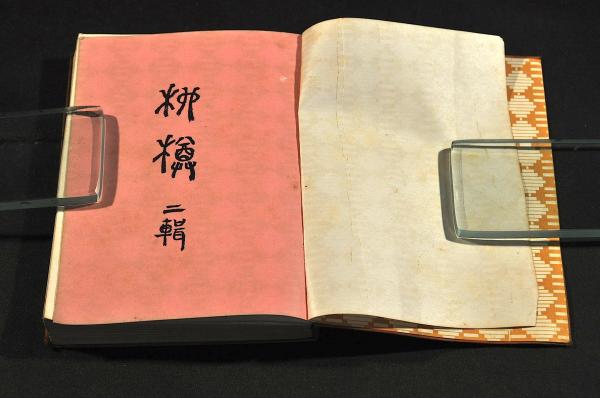 柳樽二輯